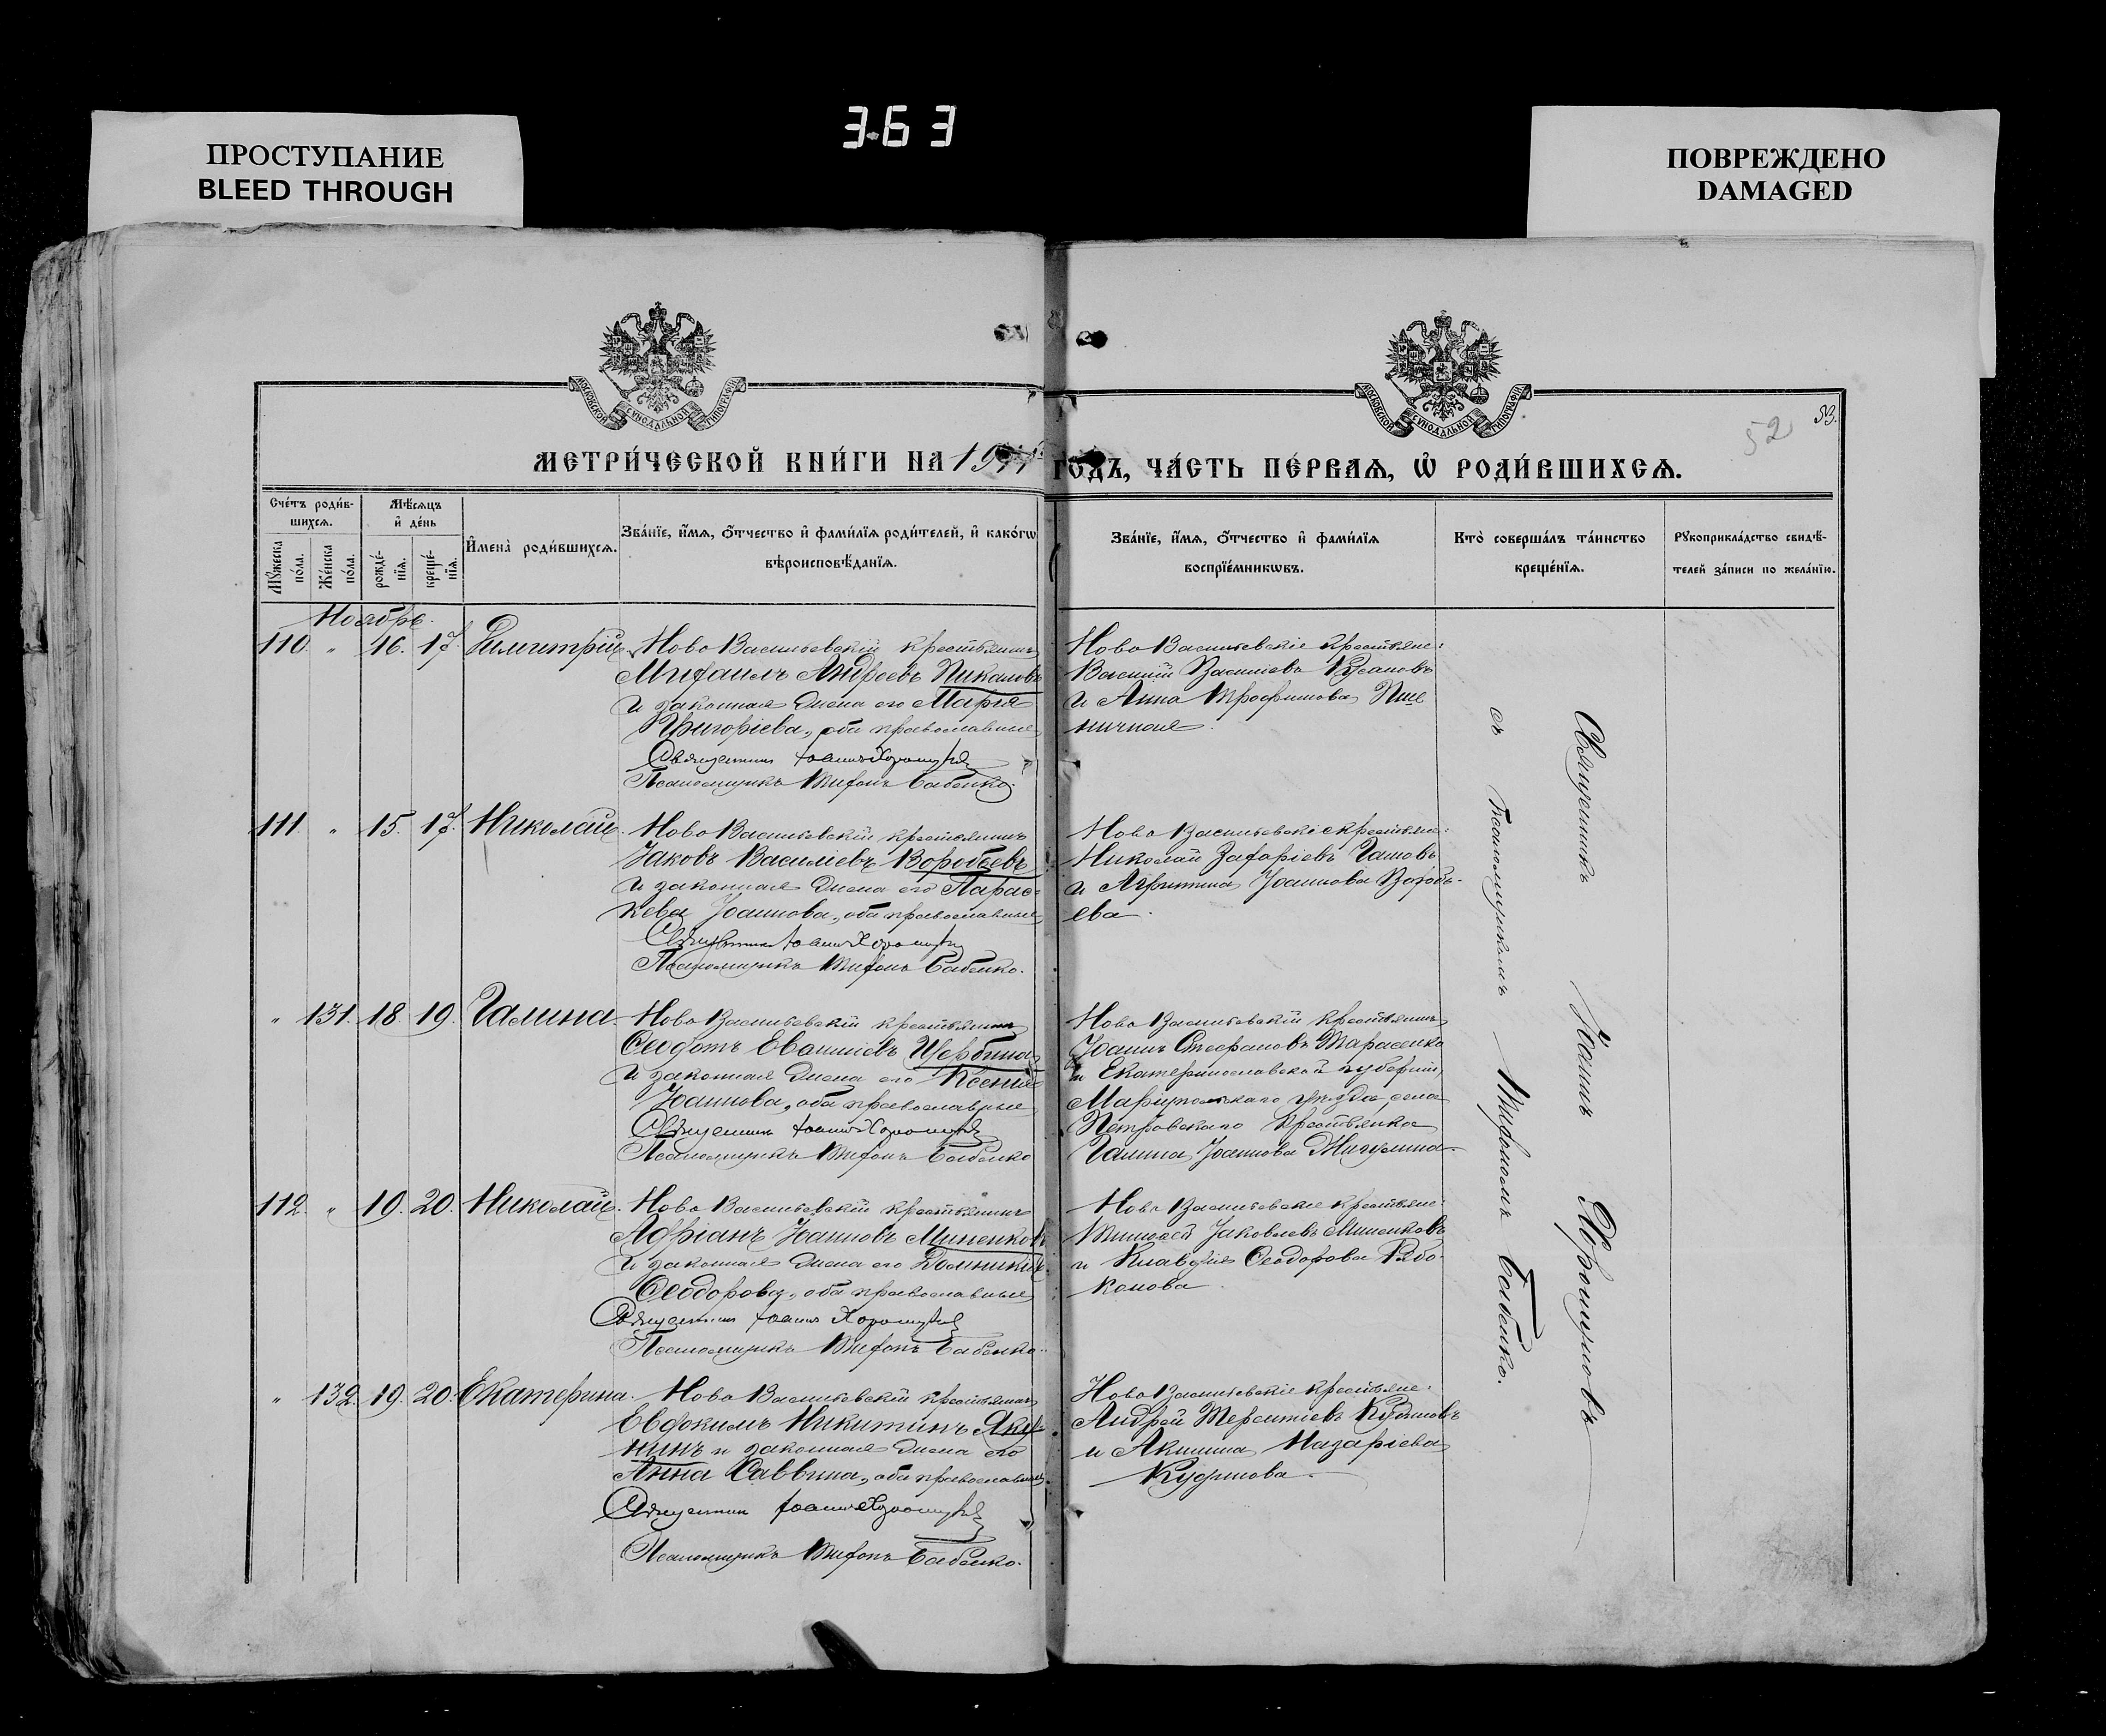 ПРОСТУПАНИЕ
BLEED THROUGH
3-63
ПОВРЕЖДЕНО
DAMAGED
МОСКОВСКОЙ СѴНОДАЛЬНОЙ ТИПОГРАФІИ
МОСКОВСКОЙ СѴНОДАЛЬНОЙ ТИПОГРАФІИ
52
53.
МЕТРИ́ЧЕСКОЙ КНИ́ГИ НА 1911 ГОДЪ, ЧА́СТЬ ПЕ́РВАѦ, Ѡ РОДИ́ВШИХСѦ.
Сче́тъ роди́в-
шихсѧ.
Мꙋжеска по́ла.
Же́нска по́ла.
Мѣ́сѧцъ
и҆ де́нь
рожде́-
нїѧ.
креще́-
нїѧ.
И҆мена̀ роди́вшихсѧ.
Зва́нїе, и҆́мѧ, ѻ҆́тчество и҆ фами́лїѧ роди́телей, и҆ како́гѡ
вѣроисповѣ́данїѧ.
Зва́нїе, и҆́мѧ, ѻ҆́тчество и҆ фами́лїѧ
воспрїе́мникѡвъ.
Кто̀ соверша́лъ та́инство
креще́нїѧ.
Рꙋкоприкла́дство свидѣ́-
телей за́писи по жела́нїю.
Ноябрь.
110. " 16. 17. Димитрій.
Ново Васильевскій крестьянинъ
Михаилъ Андреевъ Пикаловъ
и законная жена его Марія
Григоріева, оба православные
Священникъ Іоаннъ Хорошуновъ
Псаломщикъ Тифонъ Бабенко.
Ново Васильевскіе крестьяне:
Василій Василіевъ Русановъ
и Анна Трофимова Пше
ничная.
111. " 15. 17. Николай.
Ново Васильевскій крестьянинъ
Іаковъ Василіевъ Воробьевъ
и законная жена его Парас-
кева Іоаннова, оба православные
Священникъ Іоаннъ Хорошуновъ
Псаломщикъ Тифонъ Бабенко.
Ново Васильевскіе крестьяне:
Николай Захаріевъ Гашовъ
и Агриппина Іоаннова Воробь-
ева.
" 131. 18. 19. Галина
Ново Васильевскій крестьянинъ
Ѳеодотъ Евѳиміевъ Щербина
и законная жена его Ксенія
Іоаннова, оба православные
Священникъ Іоаннъ Хорошуновъ
Псаломщикъ Тифонъ Бабенко
Ново Васильевскій крестьянинъ
Іоаннъ Стефановъ Тарасенко
и Екатеринославской губерніи,
Маріупольскаго уѣзда, села
Петровскаго крестьянка
Галина Іоаннова
112. " 19. 20. Николай.
Ново Васильевскій крестьянинъ
Адріанъ Іоанновъ Миненковъ
и законная жена его Домникія
Ѳеодорова, оба православные
Священникъ Іоаннъ Хорошуновъ
Псаломщикъ Тифонъ Бабенко.
Ново Васильевскіе крестьяне:
Тимоѳей Іаковлевъ Миненковъ
и Клавдія Ѳеодорова Рябо-
конова.
" 132. 19. 20. Екатерина.
Ново Васильевскій крестьянинъ
Евдокимъ Никитинъ Яку-
нинъ и законная жена его
Анна Саввина, оба православные.
Священникъ Іоаннъ Хорошуновъ
Псаломщикъ Тифонъ Бабенко.
Ново Васильевскіе крестьяне:
Андрей Терентіевъ Кудиновъ
и Акилина Назаріева
Кудинова.
Священникъ Іоаннъ Хорошуновъ
съ псаломщикомъ Тифономъ Бабенко.